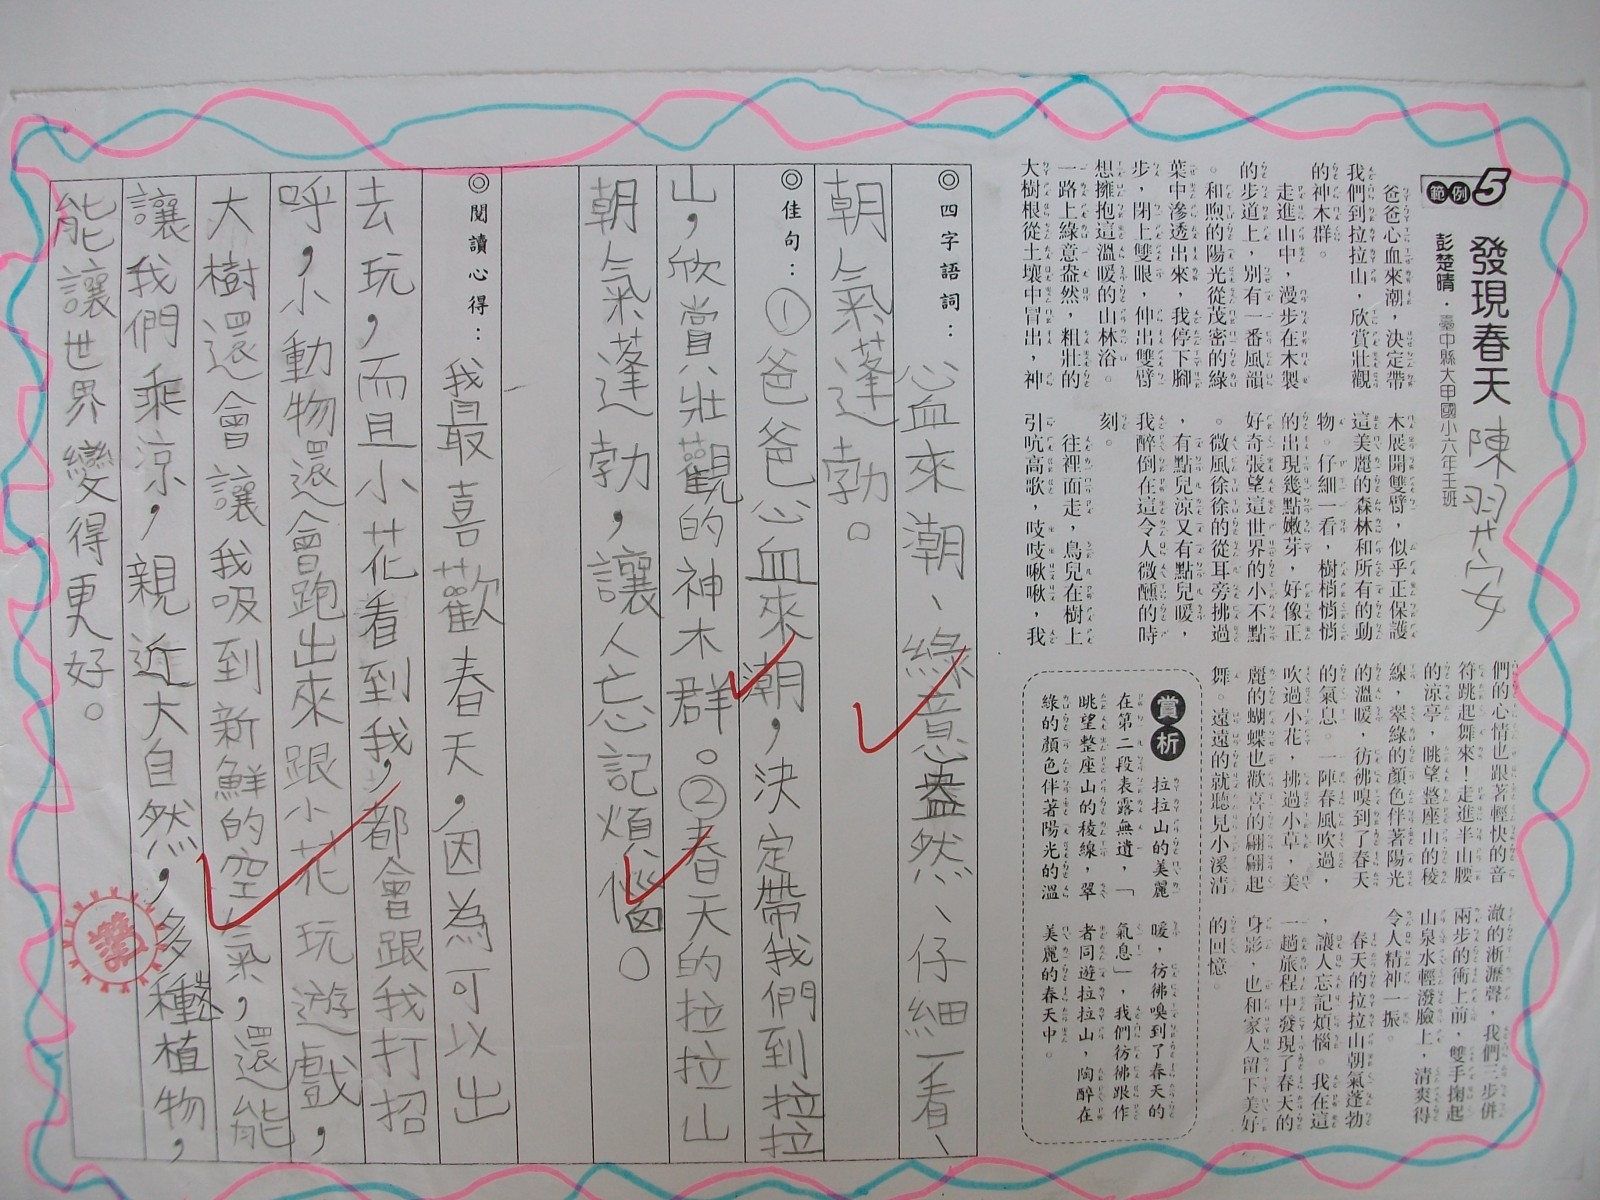 範例5
發現春天
彭楚晴・臺中縣大甲國小六年王班
陳羿安
爸爸心血來潮，決定帶
我們到拉拉山，欣賞壯觀
的神木群。
走進山中，漫步在木製
的步道上，別有一番風韻
。和煦的陽光從茂密的綠
葉中滲透出來，我停下腳
步，閉上雙眼，伸出雙臂
想擁抱這溫暖的山林浴。
一路上綠意盎然，粗壯的
大樹根從土壤中冒出，神
木展開雙臂，似乎正保護
這美麗的森林和所有的動
物。仔細一看，樹梢悄悄
的出現幾點嫩芽，好像正
好奇張望這世界的小不點
。微風徐徐的從耳旁拂過
，有點兒涼又有點兒暖，
我醉倒在這令人微醺的時
刻。
往裡面走，鳥兒在樹上
引吭高歌，吱吱啾啾，我
們的心情也跟著輕快的音
符跳起舞來！走進半山腰
的涼亭，眺望整座山的稜
線，翠綠的顏色伴著陽光
的溫暖，彷彿嗅到了春天
的氣息。一陣春風吹過，
吹過小花，拂過小草，美
麗的蝴蝶也歡喜的翩翩起
舞。遠遠的就聽見小溪清
澈的淅瀝聲，我們三步併
兩步的衝上前，雙手掬起
山泉水輕潑臉上，清爽得
令人精神一振。
春天的拉拉山朝氣蓬勃
，讓人忘記煩惱。我在這
一趟旅程中發現了春天的
身影，也和家人留下美好
的回憶。
賞析
拉拉山的美麗
在第二段表露無遺，「
眺望整座山的稜線，翠
綠的顏色伴著陽光的溫
暖，彷彿嗅到了春天的
氣息」，我們彷彿跟作
者同遊拉拉山，陶醉在
美麗的春天中。
◎四字語詞：心血來潮、綠意盎然、仔細一看、
朝氣蓬勃。
◎佳句：①爸爸心血來潮，決定帶我們到拉拉
山，欣賞壯觀的神木群。②春天的拉拉山
朝氣蓬勃，讓人忘記煩惱。
◎閱讀心得：我最喜歡春天，因為可以出
去玩，而且小花看到我，都會跟我打招
呼，小動物還會跑出來跟小花玩遊戲，
大樹還會讓我吸到新鮮的空氣，還能
讓我們乘涼，親近大自然，多種植物，
能讓世界變得更好。
讚